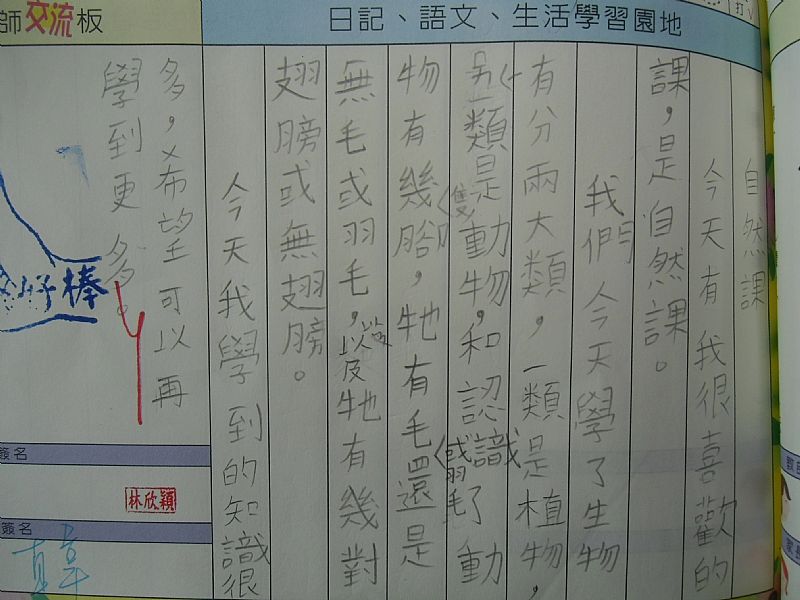 師交流板
日記、語文、生活學習園地
自然課
今天有我很喜歡的
課，是自然課。
我們今天學了生物
有分兩大類，一類是植物，
另一類是動物，和認識了動
物有幾隻腳，牠有毛或羽毛還是
無毛或羽毛，以及牠有幾對
翅膀或無翅膀。
今天我學到的知識很
多，希望可以再
學到更多。
好棒
簽名
林欣穎
簽名